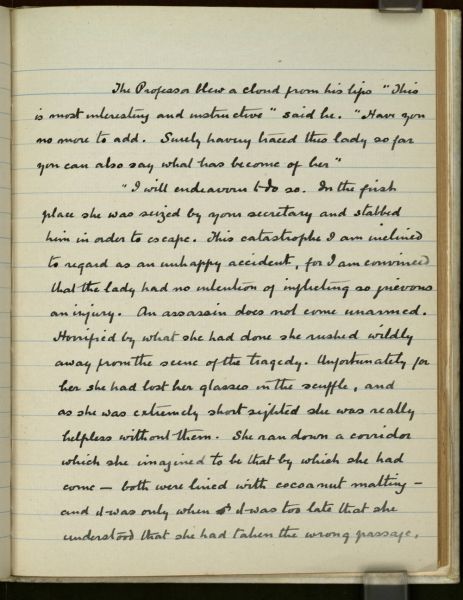 The Professor blew a cloud from his lips "This
is most interesting and instructive" said he. "Have you
no more to add. Surely having traced this lady so far
you can also say what has become of her"
"I will endeavour to do so. In the first
place she was seized by your secretary and stabbed
him in order to escape. This catastrophe I am inclined
to regard as an unhappy accident, for I am convinced
that the lady had no intention of inflicting so grievous
an injury. An assassin does not come unarmed.
Horrified by what she had done she rushed wildly
away from the scene of the tragedy. Unfortunately for
her she had lost her glasses in the scuffle, and
as she was extremely short sighted she was really
helpless without them. She ran down a corridor
which she imagined to be that by which she had
come — both were lined with cocoanut matting —
and it was only when it was too late that she
understood that she had taken the wrong passage,